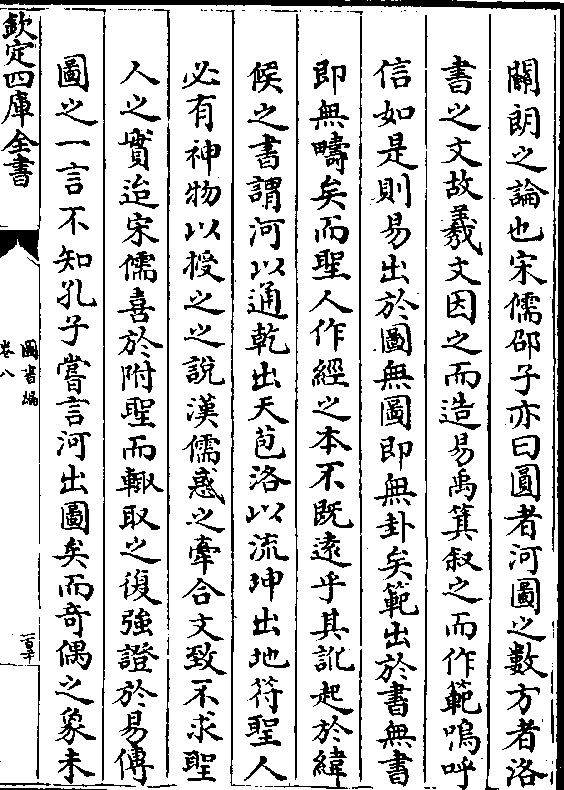 關朗之論也宋儒邵子亦曰圓者河圖之數方者洛
書之文故羲文因之而造易禹箕叙之而作範嗚呼
信如是則易出於圖無圖即無卦矣範出於書無書
即無疇矣而聖人作經之本不既遠乎其訛起於緯
候之書謂河以通乾出天苞洛以流坤出地符聖人
必有神物以授之之説漢儒惑之牽合文致不求聖
人之實迨宋儒喜於附聖而輙取之復強證於易傳
圖之一言不知孔子嘗言河出圖矣而奇偶之象未
欽定四庫全書
圖書編
卷八